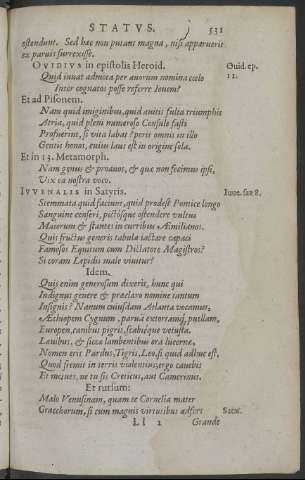 STATVS. 531
ostendunt. Sed hæc non putant magna, nisi apparuerit
ex paruis surrexisse.
OVIDIVS in epistolis Heroid. Ouid. ep.
Quid iuuat admota per auorum nomina cœlo 11.
Inter cognatos posse referre Iouem?
Et ad Pisonem.
Nam quid imiginibus, quid auitis fulta triumphis
Atria, quid pleni numeroso Consule fasti
Profuerint, si vita labat? peris omnis in illo
Gentis honos, cuius laus est in origine sola.
Et in 13. Metamorph.
Nam genus & proauos, & quæ non fecimus ipsi,
Vix ea nostra voco.
IVVENALIS in Satyris. Iuue. sat 8.
Stemmata quid faciunt, quid prodest Pontice longo
Sanguine censeri, pictósque ostendere vultus
Maiorum & stantes in curribus Æmilianos.
Quis fructus generis tabula iactare capaci
Famosos Equitum cum Dictatore Magistros?
Si coram Lepidis male viuitur?
Idem.
Quis enim generosum dixerit, hunc qui
Indignus genere & præclaro nomine tantum
Insignis? Nanum cuiusdam Atlanta vocamus,
Æthiopem Cygnum, paruá extortamq; puellam,
Europen, canibus pigris, scabiéque vetusta
Leuibus, & siccæ lambentibus ora lucernæ,
Nomen erit Pardus, Tigris, Leo, si quid adhuc est,
Quod fremit in terris violentius, ergo cauebis
Et metues, ne tu sis Creticus, aut Camerinus.
Et rursum:
Malo Venusinam, quam te Cornelia mater
Gracchorum, si cum magnis virtutibus adfers
Ll 2 Grande